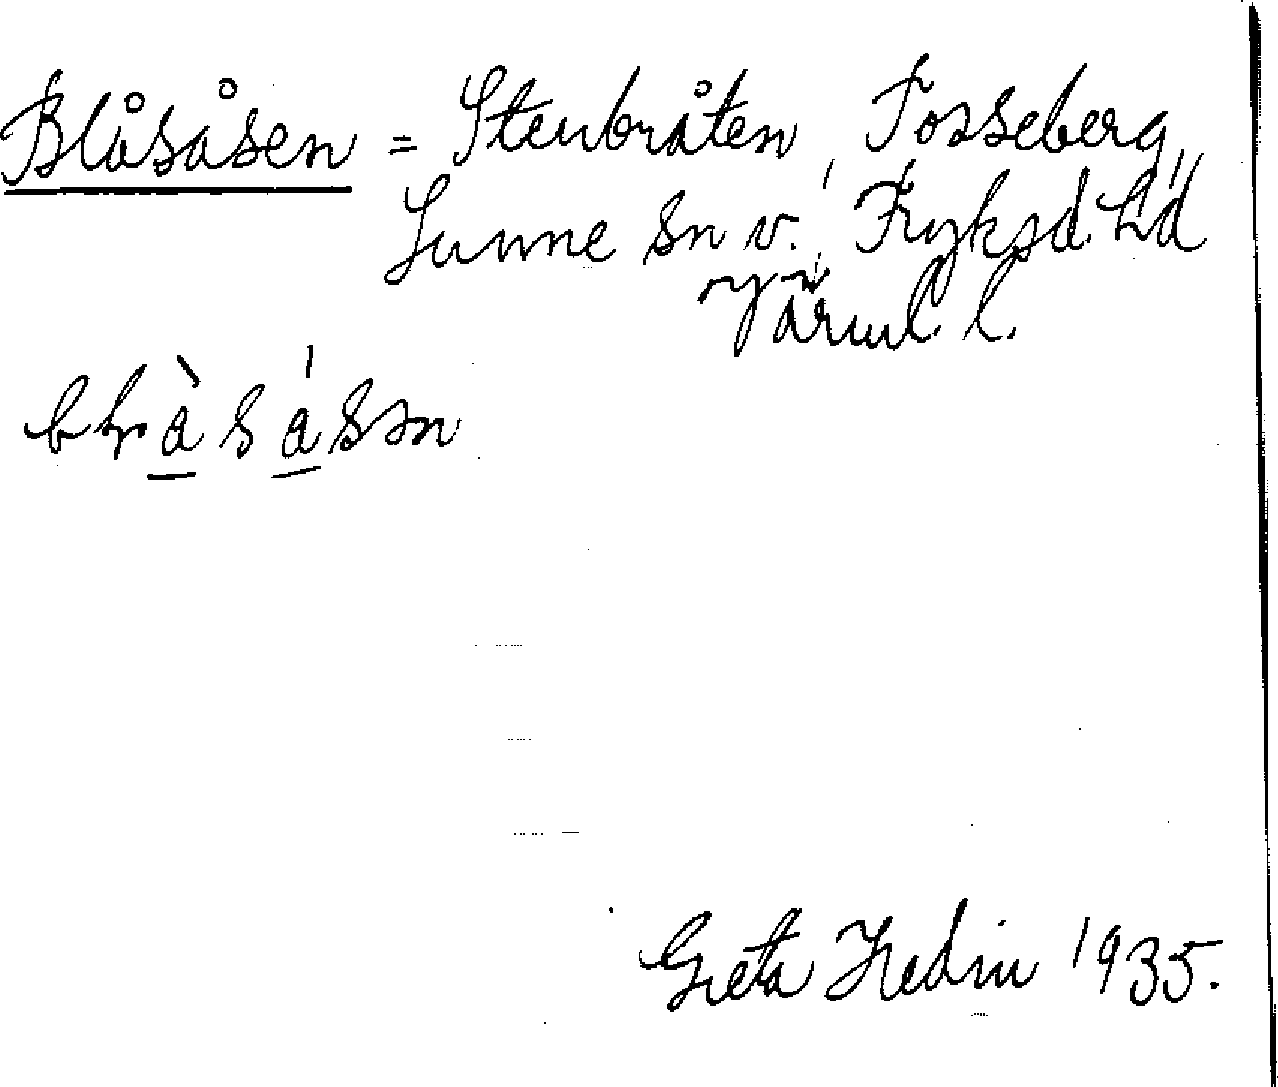 Blåsåsen = Stenbråten, Fosseberg,
Sunne sn v., Fryksd. hd
Värml. l.
Greta Hedin 1935.